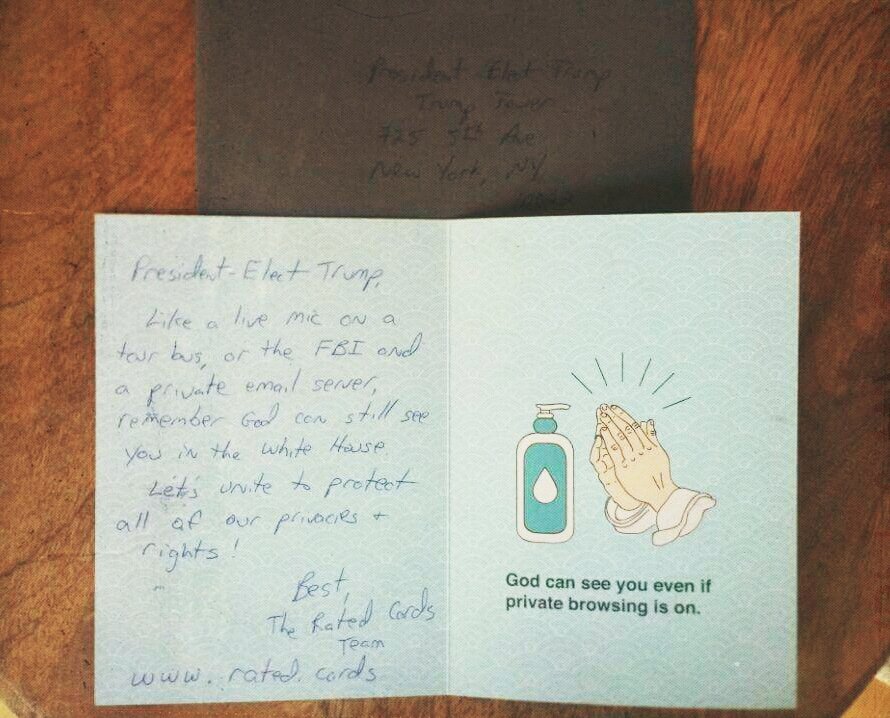 President-Elect Trump
Trump Tower
725 5th Ave
New York, NY
President-Elect Trump,
Like a live mic on a
tour bus, or the FBI and
a private email server,
remember God can still see
you in the White House
Let's unite to protect
all of our privacies +
rights!
Best,
The Rated Cards
Team
www.rated.cards
God can see you even if
private browsing is on.